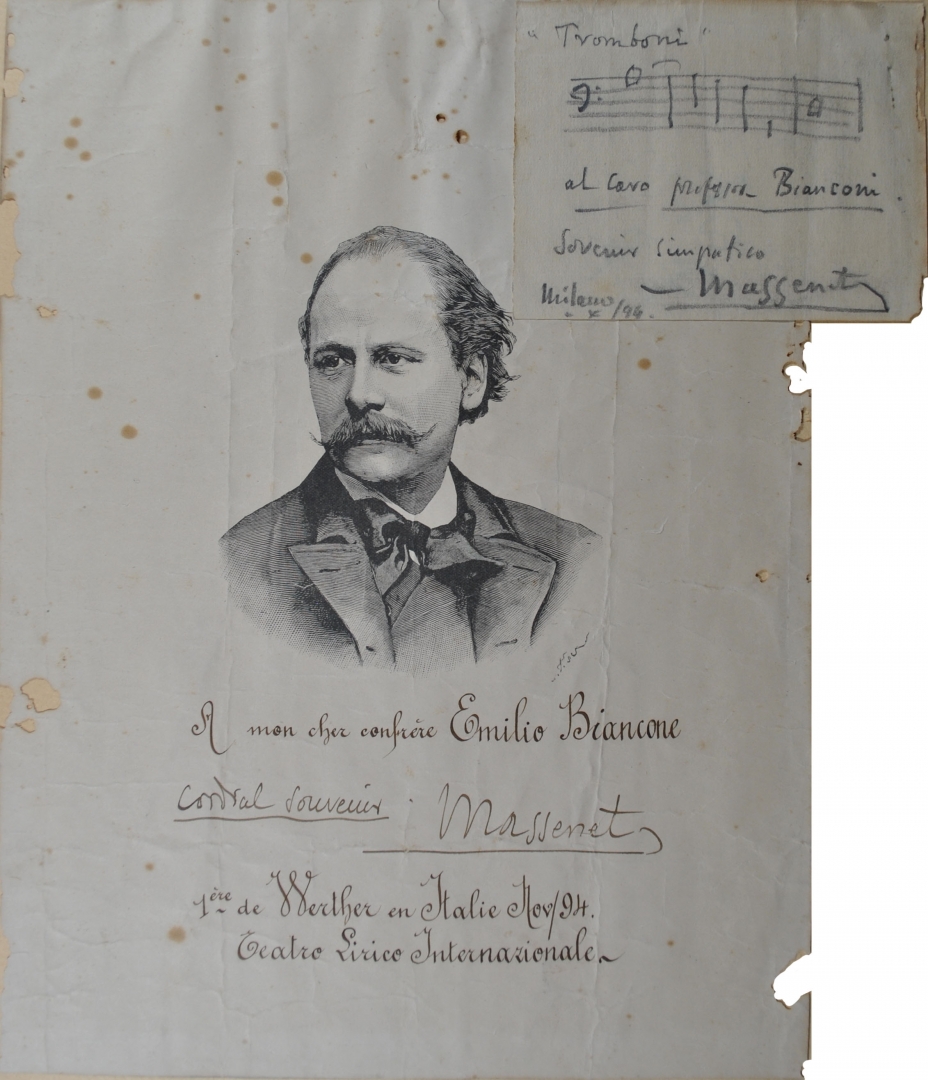 "Tromboni"
al caro professor Bianconi.
Sovenir simpatico
Massenet
Milano x/94.
A mon cher confrère Emilio Biancone
Cordial Souvenir.
Massenet
1ère de Werther en Italie Nov/94.
Teatro Lirico Internazionale